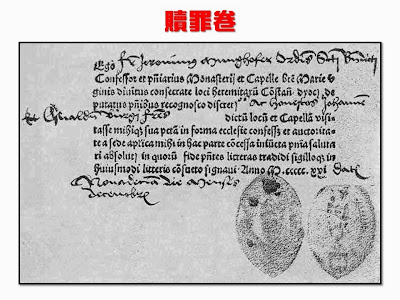 贖罪卷
Ego fr Jeronimus Ordīs Scti
Confessor et pn̄iarius Monasterij et Capelle btē Marie
ginis diuinitus consecrate loci heremitarū Cōstan̄. dyoc̄. de
putatus pn̄tibus recognosco discret Ac honestos Johannē
Et fres dictū locū et Capellā visi
tasse mihiq̄ sua pctā in forma ecclesie confess et auctorita
te a sede aplica mihi in hac parte cōcessa iniūcta pn̄ia saluta
ri absolui: in quorū fidē pn̄tes litteras tradidi sigilloq̄ in
huiusmodi litteris cōsueto signaui. Anno M.ccccc.xxi
die Mensis
decembris